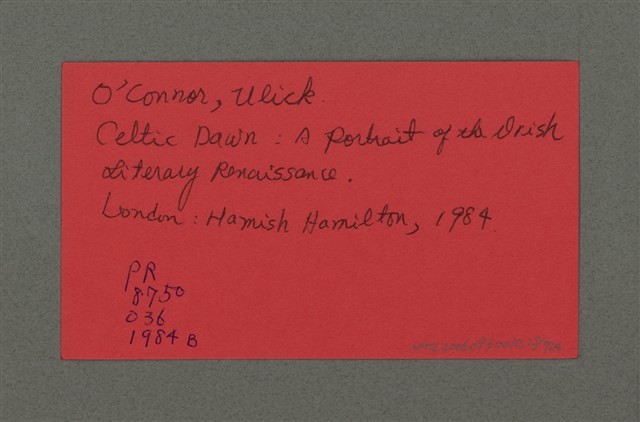 O'Connor, Ulick.
Celtic Dawn : A Portrait of the Irish
Literary Renaissance.
London : Hamish Hamilton, 1984.
PR
8750
O36
1984 B